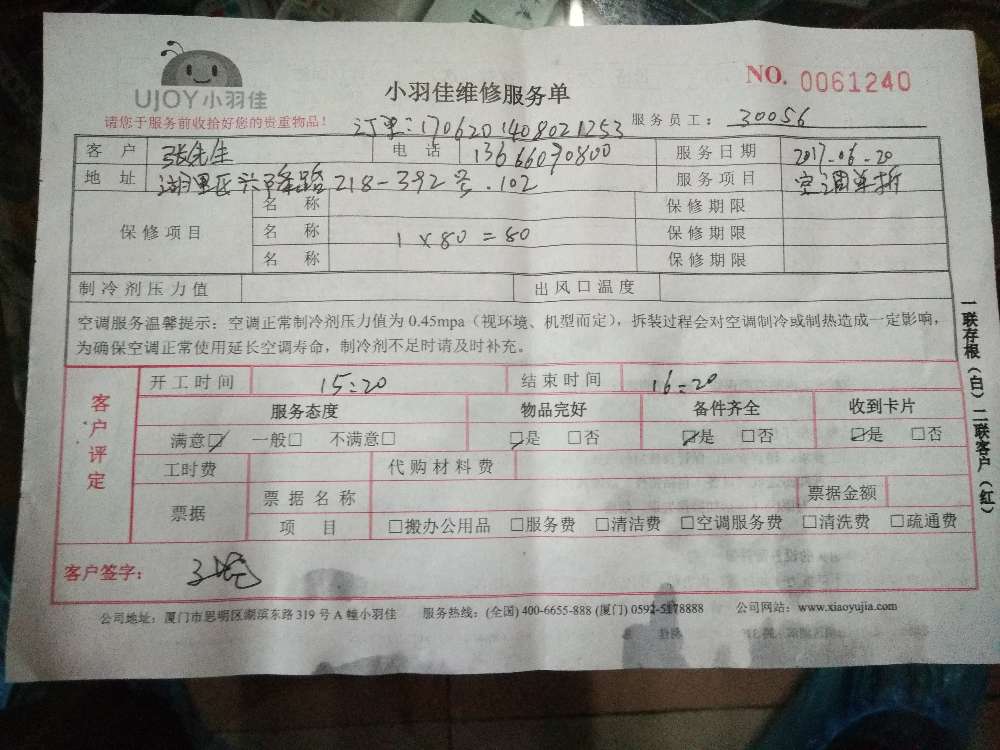 UJOY小羽佳
小羽佳维修服务单
NO. 0061240
请您于服务前收拾好您的贵重物品！
订单:1706201408021253
服务员工： 30056
客 户 张先生 电 话 13666070800 服务日期 2017-06-20
地 址 湖里区兴隆路218-392号.102 服务项目 空调单拆
保修项目
名 称 保修期限
名 称 1×80=80 保修期限
名 称 保修期限
制冷剂压力值 出风口温度
空调服务温馨提示：空调正常制冷剂压力值为 0.45mpa（视环境、机型而定），拆装过程会对空调制冷或制热造成一定影响，
为确保空调正常使用延长空调寿命，制冷剂不足时请及时补充。
客户评定
开工时间 15:20 结束时间 16:20
服务态度 物品完好 备件齐全 收到卡片
满意☑ 一般□ 不满意□ ☑是 □否 ☑是 □否 ☑是 □否
工时费 代购材料费
票据
票据名称 票据金额
项 目 □搬办公用品 □服务费 □清洁费 □空调服务费 □清洗费 □疏通费
客户签字：
公司地址：厦门市思明区湖滨东路 319 号 A 幢小羽佳 服务热线：(全国) 400-6655-888 (厦门) 0592-5178888 公司网站：www.xiaoyujia.com
一联存根（白）二联客户（红）